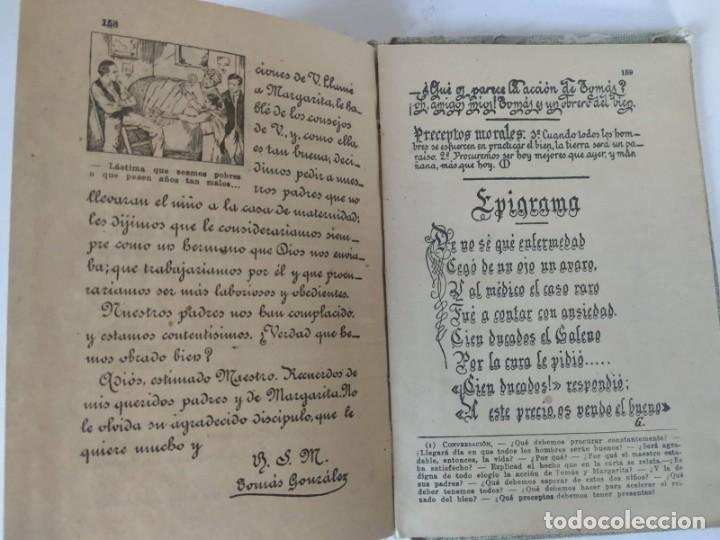 158
ciones de V. Llamé
a Margarita, le ha-
blé de los consejos
de V., y, como ella
es tan buena, deci-
dimos pedir a nues-
tros padres que no
— Lástima que seamos pobres
o que pasen años tan malos...
llevaran el niño a la casa de maternidad;
les dijimos que le consideraríamos siem-
pre como un hermano que Dios nos envia-
ba; que trabajaríamos por él y que procu-
raríamos ser más laboriosos y obedientes.
Nuestros padres nos han complacido.
y estamos contentísimos. ¿Verdad que he-
mos obrado bien?
Adiós, estimado Maestro. Recuerdos de
mis queridos padres y de Margarita. No
le olvida su agradecido discípulo, que le
quiere mucho y
B. S. M.
Tomás González
159
—¿Qué os parece la acción de Tomás?
¡Oh, amigos míos! Tomás es un obrero del bien.
Preceptos morales: 1º Cuando todos los hom-
bres se esfuercen en practicar el bien, la tierra será un pa-
raíso. 2º Procuremos ser hoy mejores que ayer, y ma-
ñana, más que hoy. (1)
Epigrama
De no sé qué enfermedad
Cegó de un ojo un avaro,
Y al médico el caso raro
Fué a contar con ansiedad.
Cien ducados el Galeno
Por la cura le pidió.....
«¡Cien ducados!» respondió;
«A este precio, os vendo el bueno»
G.
(1) Conversación. — ¿Qué debemos procurar constantemente? —
¿Llegará día en que todos los hombres serán buenos? — ¿Será agra-
dable, entonces, la vida? — ¿Por qué? — ¿Por qué el maestro esta-
ba satisfecho? — Explicad el hecho que en la carta se relata.— ¿Es
digna de todo elogio la acción de Tomás y Margarita? — ¿Y la de
sus padres? — ¿Qué debemos esperar de estos dos niños? — ¿Qué
deber tenemos todos? — ¿Qué debemos hacer para acelerar el rei-
nado del bien? — ¿Qué preceptos debemos tener presentes?
todocoleccion